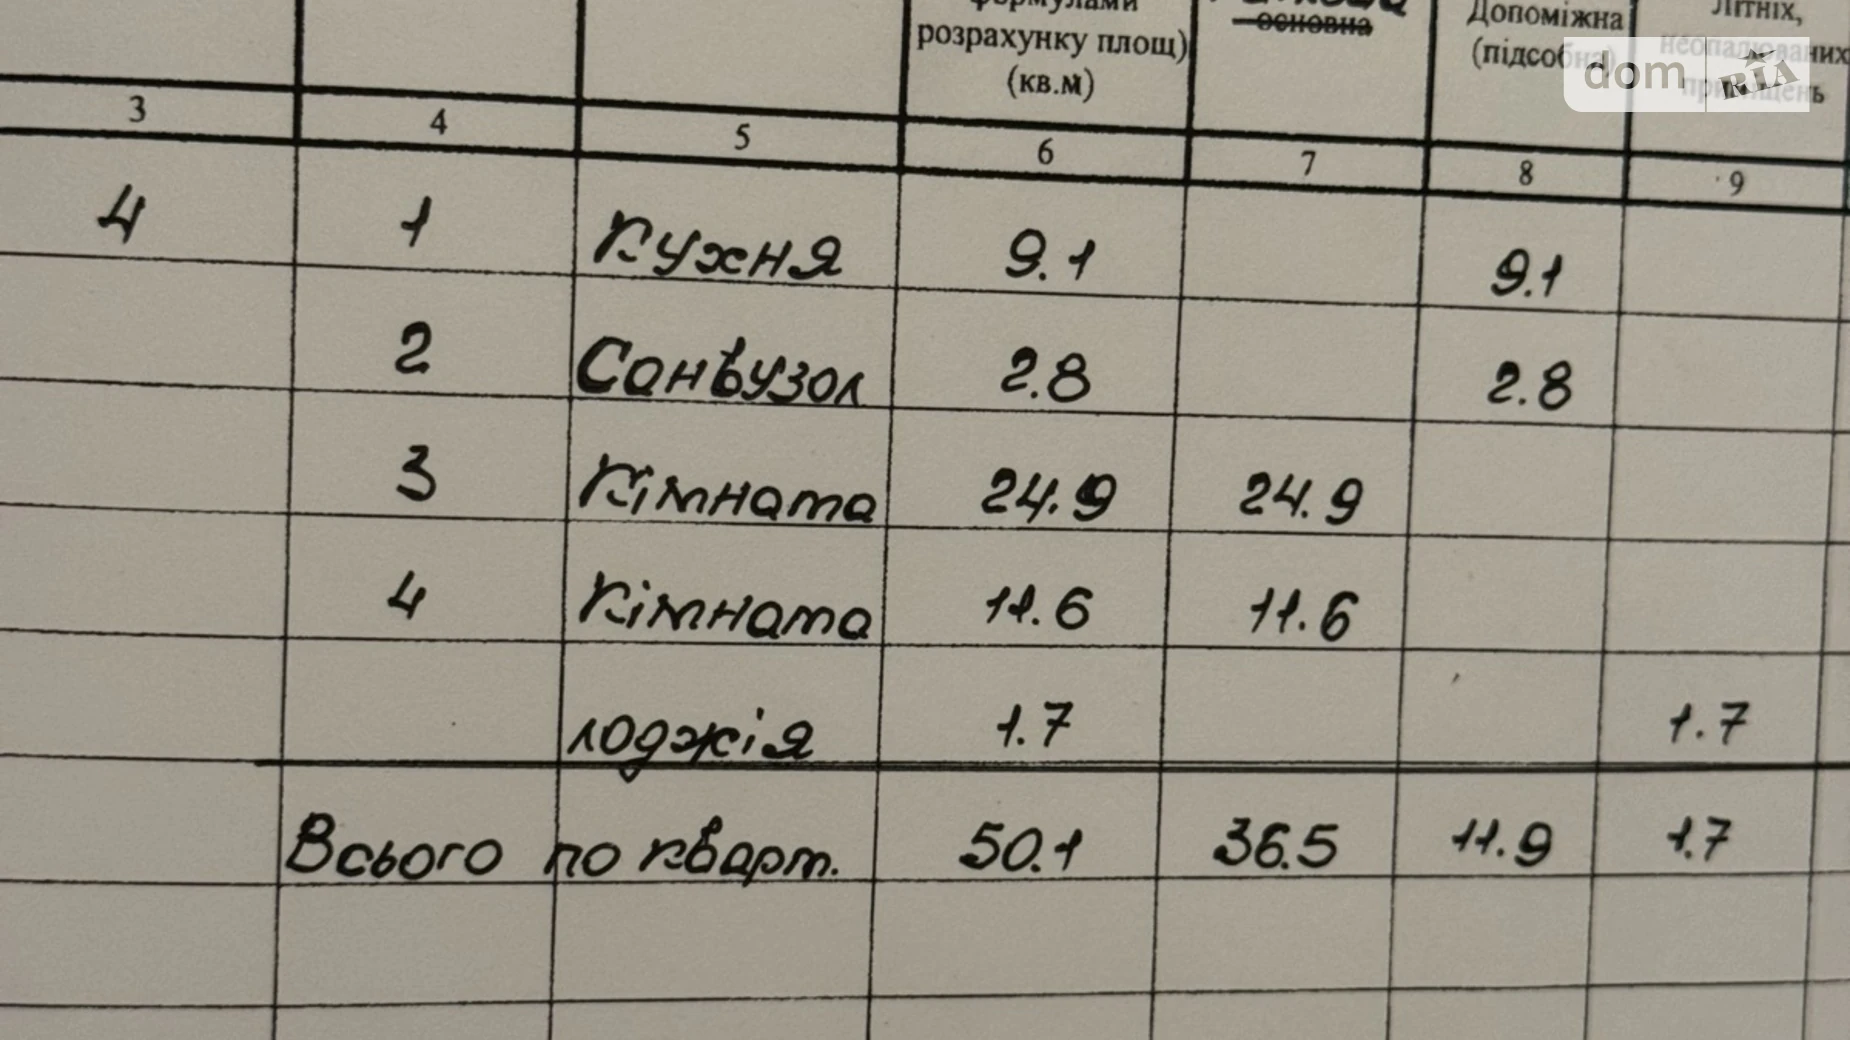 розрахунку площ)
(кв.м)
основна
Допоміжна
літніх,
dom RIA
3 4 5 6 7 8 9
4 1 Кухня 9.1 9.1
2 Санвузол 2.8 2.8
3 Кімната 24.9 24.9
4 Кімната 11.6 11.6
лоджія 1.7 1.7
Всього по кварт. 50.1 36.5 11.9 1.7